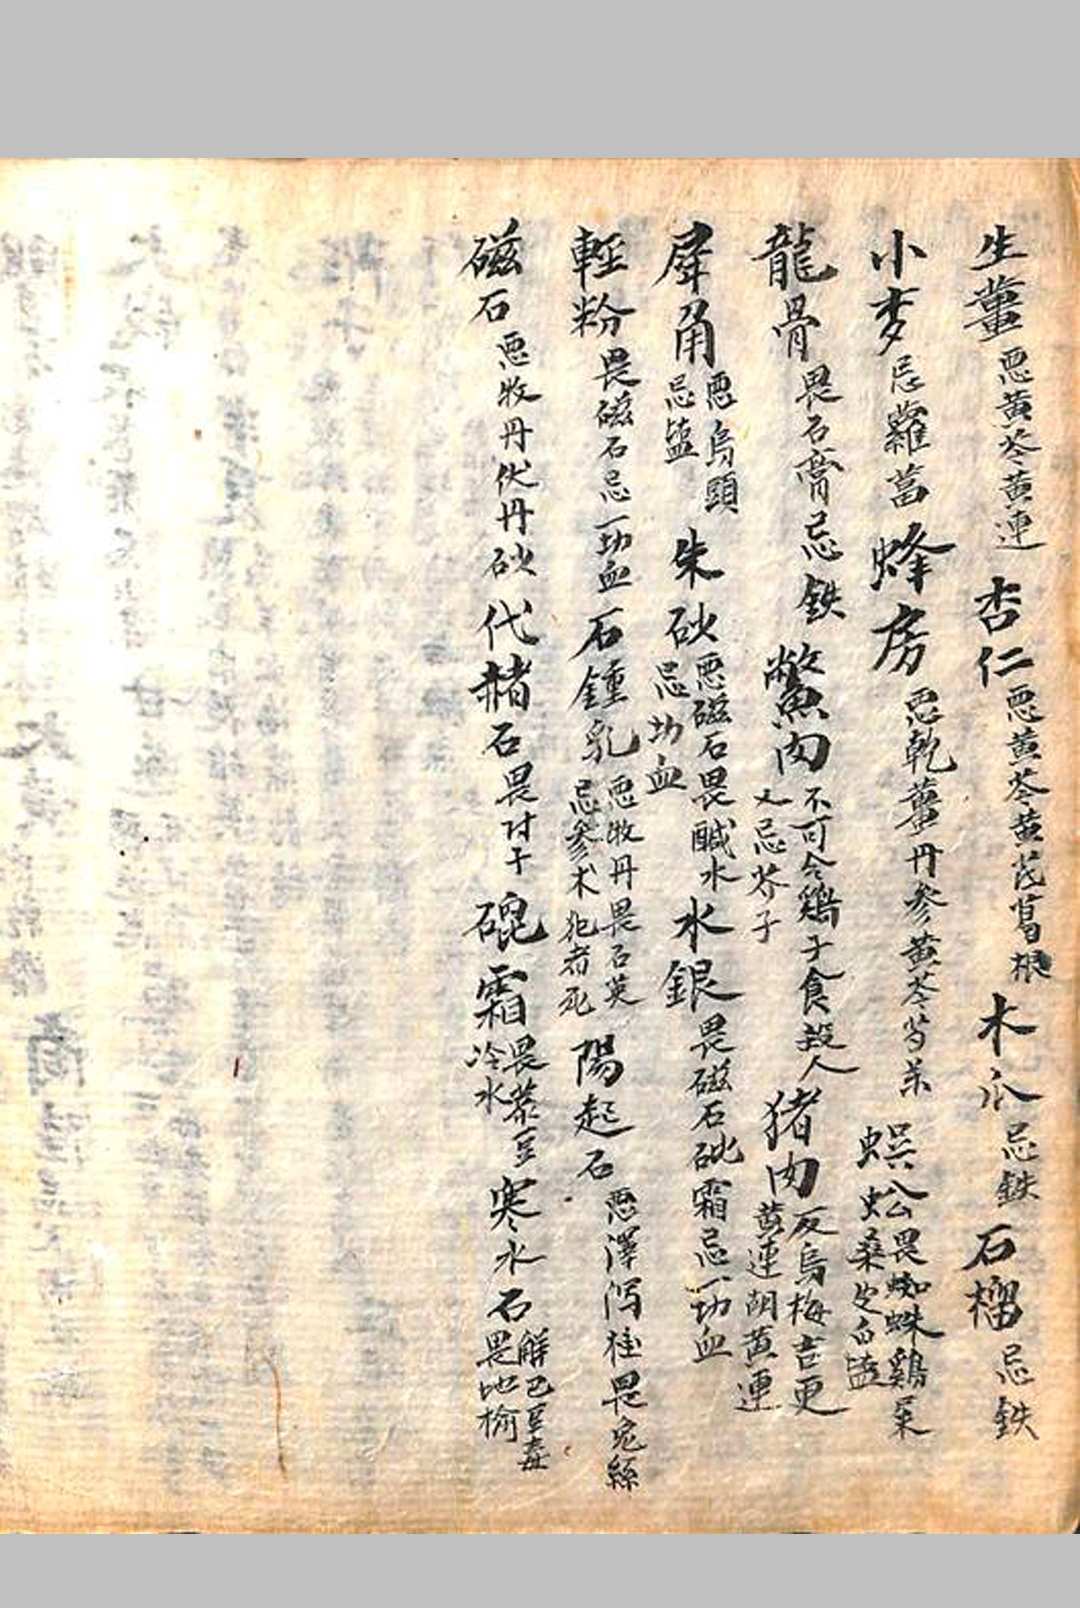 生薑 惡黃芩黃連 杏仁 惡黃芩黃芪葛根 木瓜 忌鉄 石榴 忌鉄
小麦 忌蘿葍 蜂房 惡乾薑丹參黃芩芍茱 蜈蚣 畏蜘蛛鷄屎桑皮白塩
龍骨 畏石膏忌鉄 鱉肉 不可合鷄子食殺人又忌芥子 猪肉 反烏梅吉更黃連胡黃連
犀角 惡烏頭忌塩 朱砂 惡磁石畏鹹水忌切血 水銀 畏磁石砒霜忌一切血
輕粉 畏磁石忌一切血 石鍾乳 惡牧丹畏石英忌參术犯者死 陽起石 惡澤泻桂畏兔絲
磁石 惡牧丹伏丹砂 代赭石 畏付子 磇霜 畏菉豆冷水 寒水石 解巴豆毒畏地榆